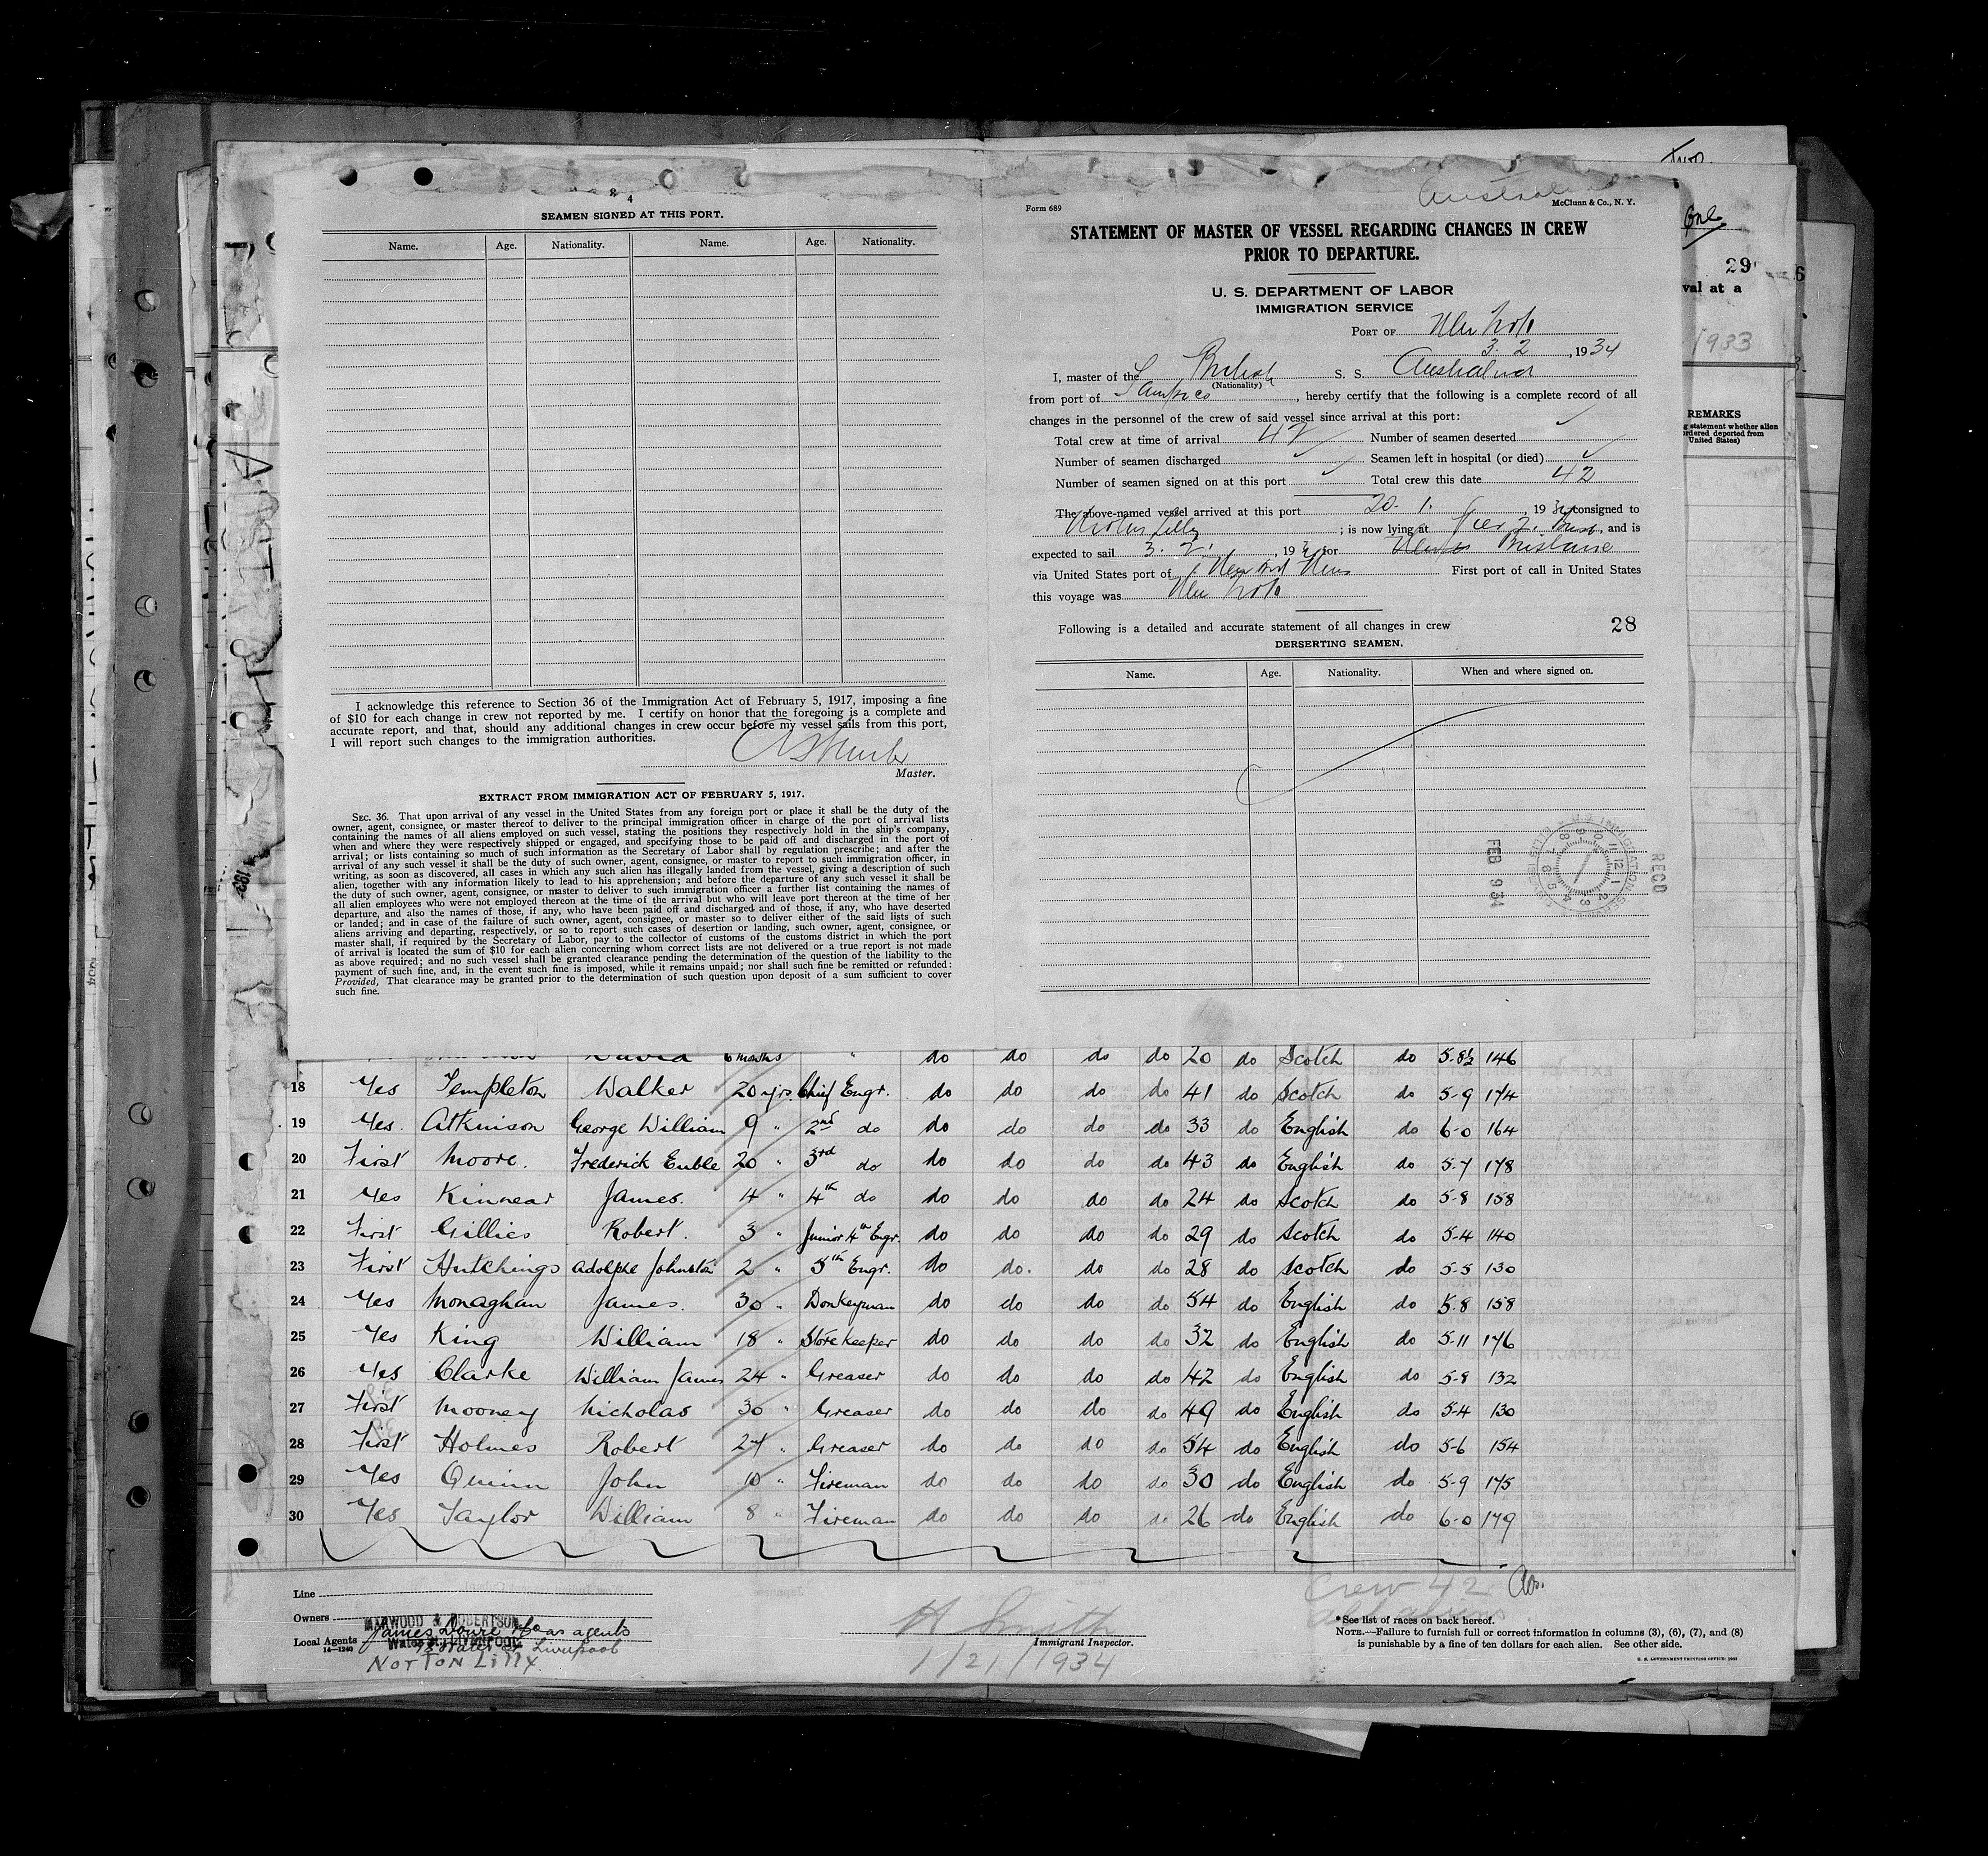 4
SEAMEN SIGNED AT THIS PORT.
Name. Age. Nationality. Name. Age. Nationality.
I acknowledge this reference to Section 36 of the Immigration Act of February 5, 1917, imposing a fine
of $10 for each change in crew not reported by me. I certify on honor that the foregoing is a complete and
accurate report, and that, should any additional changes in crew occur before my vessel sails from this port,
I will report such changes to the immigration authorities.
Master.
EXTRACT FROM IMMIGRATION ACT OF FEBRUARY 5, 1917.
SEC. 36. That upon arrival of any vessel in the United States from any foreign port or place it shall be the duty of the
owner, agent, consignee, or master thereof to deliver to the principal immigration officer in charge of the port of arrival lists
containing the names of all aliens employed on such vessel, stating the positions they respectively hold in the ship's company,
when and where they were respectively shipped or engaged, and specifying those to be paid off and discharged in the port of
arrival; or lists containing so much of such information as the Secretary of Labor shall by regulation prescribe; and after the
arrival of any such vessel it shall be the duty of such owner, agent, consignee, or master to report to such immigration officer, in
writing, as soon as discovered, all cases in which any such alien has illegally landed from the vessel, giving a description of such
alien, together with any information likely to lead to his apprehension; and before the departure of any such vessel it shall be
the duty of such owner, agent, consignee, or master to deliver to such immigration officer a further list containing the names of
all alien employees who were not employed thereon at the time of the arrival but who will leave port thereon at the time of her
departure, and also the names of those, if any, who have been paid off and discharged and of those, if any, who have deserted
or landed; and in case of the failure of such owner, agent, consignee, or master so to deliver either of the said lists of such
aliens arriving and departing, respectively, or so to report such cases of desertion or landing, such owner, agent, consignee, or
master shall, if required by the Secretary of Labor, pay to the collector of customs of the customs district in which the port
of arrival is located the sum of $10 for each alien concerning whom correct lists are not delivered or a true report is not made
as above required; and no such vessel shall be granted clearance pending the determination of the question of the liability to the
payment of such fine, and, in the event such fine is imposed, while it remains unpaid; nor shall such fine be remitted or refunded:
Provided, That clearance may be granted prior to the determination of such question upon deposit of a sum sufficient to cover
such fine.
Form 689
McClunn & Co., N. Y.
STATEMENT OF MASTER OF VESSEL REGARDING CHANGES IN CREW
PRIOR TO DEPARTURE.
U. S. DEPARTMENT OF LABOR
IMMIGRATION SERVICE
PORT OF New York
3. 2, 1934
I, master of the British S. S. Australind
(Nationality)
from port of Tampico, hereby certify that the following is a complete record of all
changes in the personnel of the crew of said vessel since arrival at this port:
Total crew at time of arrival 42 Number of seamen deserted
Number of seamen discharged Seamen left in hospital (or died)
Number of seamen signed on at this port Total crew this date 42
The above-named vessel arrived at this port 20. 1., 1934 consigned to
Norton Lilly; is now lying at Pier 2., and is
expected to sail 3. 2., 193 for Brisbane
via United States port of Newport News First port of call in United States
this voyage was New York
Following is a detailed and accurate statement of all changes in crew
28
DERSERTING SEAMEN.
Name. Age. Nationality. When and where signed on.
RECD
FEB 9 34
One
29
val at a
1933
REMARKS
statement whether alien
ordered deported from
United States)
David 6 months " do do do do 20 do Scotch do 5-8½ 146
18 Yes Templeton Walker 20 yrs. Chief Engr. do do do do 41 do Scotch do 5-9 174
19 Yes. Atkinson George William 9 " 2nd do do do do do 33 do English do 6-0 164
20 First Moore. Frederick 20 " 3rd do do do do do 43 do English do 5-7 178
21 Yes Kinnear James. 4 " 4th do do do do do 24 do Scotch do 5-8 158
22 First Gillies Robert. 3 " Junior 4th Engr. do do do do 29 do Scotch do 5-4 140
23 First Hutchings Adolphe Johnston 2 " 5th Engr. do do. do do 28 do Scotch do 5-5 130
24 Yes Monaghan James. 30 " Donkeyman do do do do 54 do English do 5-8 158
25 Yes King William 18 " Storekeeper do do do do 32 do English do 5-11 176
26 Yes Clarke William James 24 " Greaser do do do do 42 do English do 5-8 132
27 First Mooney Nicholas 30 " Greaser do do do do 49 do English do 5-4 130
28 First Holmes Robert 24 " Greaser do do do do 54 do English do 5-6 154
29 Yes Quinn John 10 " Fireman do do do do 30 do English do 5-9 175
30 Yes Taylor William 8 " Fireman do do do do 26 do English do 6-0 179
Line
Owners
MARWOOD & ROBERTSON
Local Agents
14—1240
as agents
Water St Liverpool
NORTON LILLY
H Smith
Immigrant Inspector.
1/21/1934
Crew 42
all aliens
*See list of races on back hereof.
NOTE.—Failure to furnish full or correct information in columns (3), (6), (7), and (8)
is punishable by a fine of ten dollars for each alien. See other side.
U. S. GOVERNMENT PRINTING OFFICE: 1932